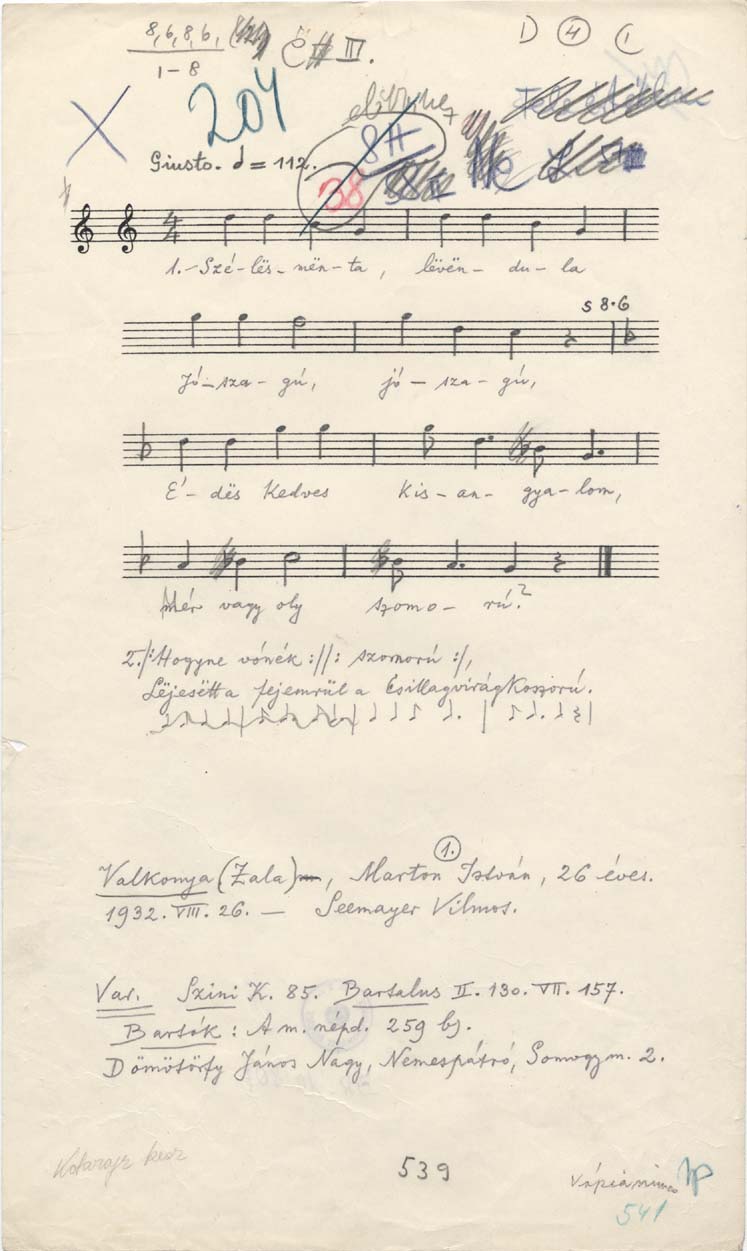 8, 6, 8, 6,
1-8
III.
D 4 (
204
8 H
38
Giusto. = 112.
4
4
1.- Szé-lës-mën-ta, lëvën-du-la
s 8·6
Jó-sza-gú, jó-sza-gú,
É-dës kedves kis-an-gya-lom,
Mér vagy oly szomo-rú?
2. /: Hogyne vónék :/ /: szomorú :/,
Lëjesëtt a fejemrül a Csillagvirágkoszorú.
1.
Valkonya (Zala), Marton István, 26 éves.
1932. VIII. 26. — Seemayer Vilmos.
Var. Szini K. 85. Bartalus II. 130. VII. 157.
Bartók: A m. népd. 259 bj.
Dömötörfy János Nagy, Nemespátró, Somogym. 2.
kész
539
541